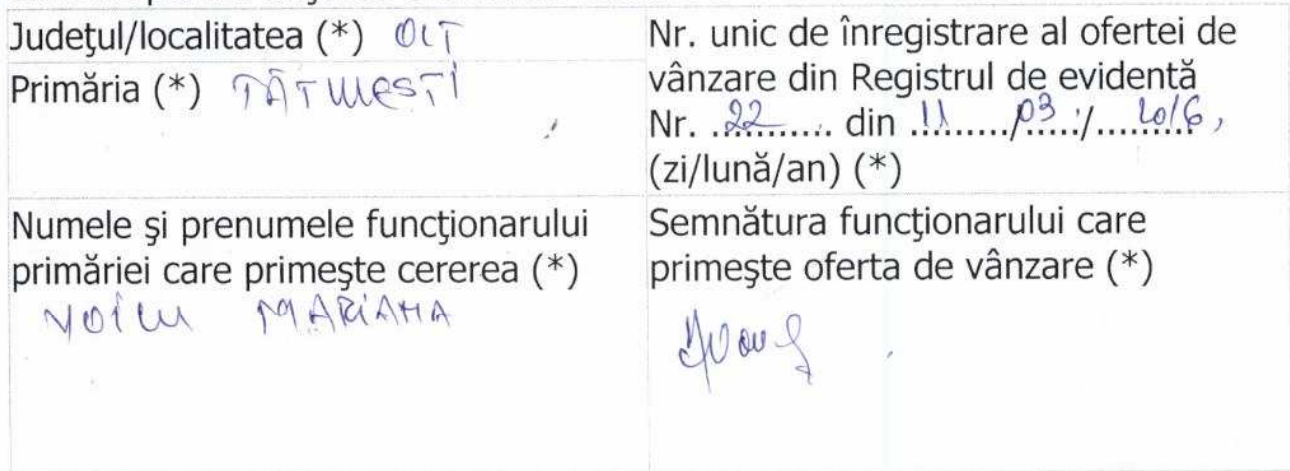 Județul/localitatea (*) OLT
Primăria (*) TĂTULEȘTI
Nr. unic de înregistrare al ofertei de
vânzare din Registrul de evidentă
Nr. ..22........ din ..11...../..03../...2016,
(zi/lună/an) (*)
Numele şi prenumele funcţionarului
primăriei care primeşte cererea (*)
VOICU MARIANA
Semnătura funcţionarului care
primeşte oferta de vânzare (*)